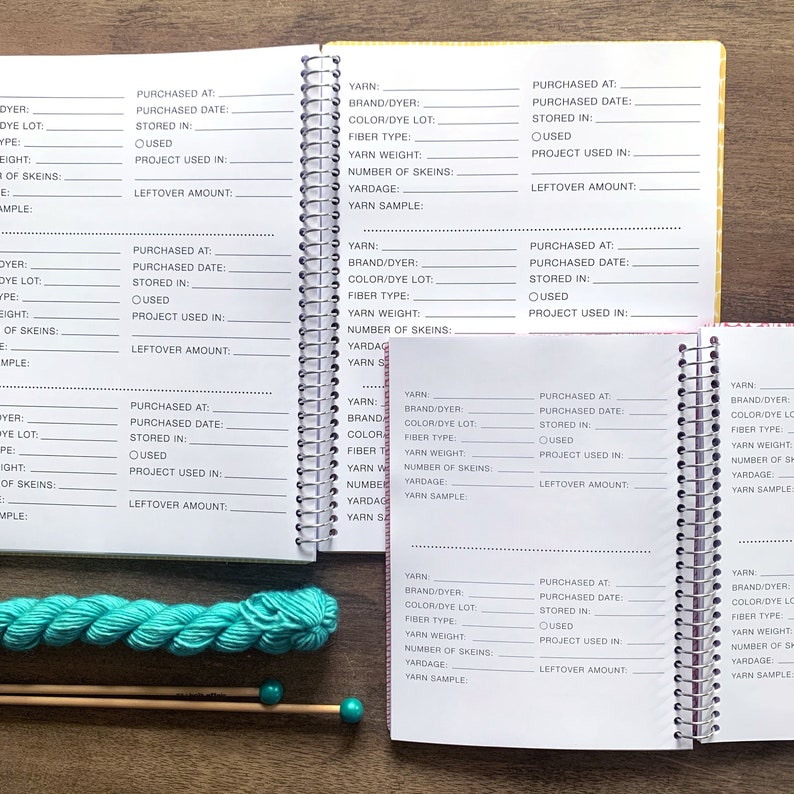 PURCHASED AT:
DYER: PURCHASED DATE:
DYE LOT: STORED IN:
YPE: USED
WEIGHT: PROJECT USED IN:
R OF SKEINS:
E: LEFTOVER AMOUNT:
AMPLE:
PURCHASED AT:
DYER: PURCHASED DATE:
YE LOT: STORED IN:
YPE: USED
WEIGHT: PROJECT USED IN:
R OF SKEINS:
E: LEFTOVER AMOUNT:
MPLE:
PURCHASED AT:
DYER: PURCHASED DATE:
YE LOT: STORED IN:
PE: USED
WEIGHT: PROJECT USED IN:
OF SKEINS:
: LEFTOVER AMOUNT:
MPLE:
YARN: PURCHASED AT:
BRAND/DYER: PURCHASED DATE:
COLOR/DYE LOT: STORED IN:
FIBER TYPE: USED
YARN WEIGHT: PROJECT USED IN:
NUMBER OF SKEINS:
YARDAGE: LEFTOVER AMOUNT:
YARN SAMPLE:
YARN: PURCHASED AT:
BRAND/DYER: PURCHASED DATE:
COLOR/DYE LOT: STORED IN:
FIBER TYPE: USED
YARN WEIGHT: PROJECT USED IN:
NUMBER OF SKEINS:
YARDAGE:
YARN SA
YARN:
BRAND/
COLOR/
FIBER T
YARN W
NUMBE
YARDAG
YARN SA
YARN: PURCHASED AT:
BRAND/DYER: PURCHASED DATE:
COLOR/DYE LOT: STORED IN:
FIBER TYPE: USED
YARN WEIGHT: PROJECT USED IN:
NUMBER OF SKEINS:
YARDAGE: LEFTOVER AMOUNT:
YARN SAMPLE:
YARN: PURCHASED AT:
BRAND/DYER: PURCHASED DATE:
COLOR/DYE LOT: STORED IN:
FIBER TYPE: USED
YARN WEIGHT: PROJECT USED IN:
NUMBER OF SKEINS:
YARDAGE: LEFTOVER AMOUNT:
YARN SAMPLE:
YARN:
BRAND/DYER:
COLOR/DYE LOT:
FIBER TYPE:
YARN WEIGHT:
NUMBER OF SKEI
YARDAGE:
YARN SAMPLE:
YARN:
BRAND/DYER:
COLOR/DYE LOT:
FIBER TYPE:
YARN WEIGHT:
NUMBER OF SKEI
YARDAGE:
YARN SAMPLE: